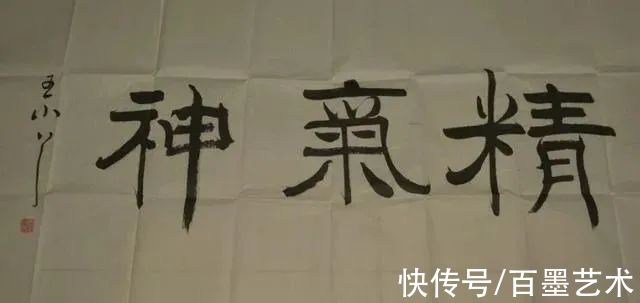 精氣神
王小丫
快传号/百墨艺术